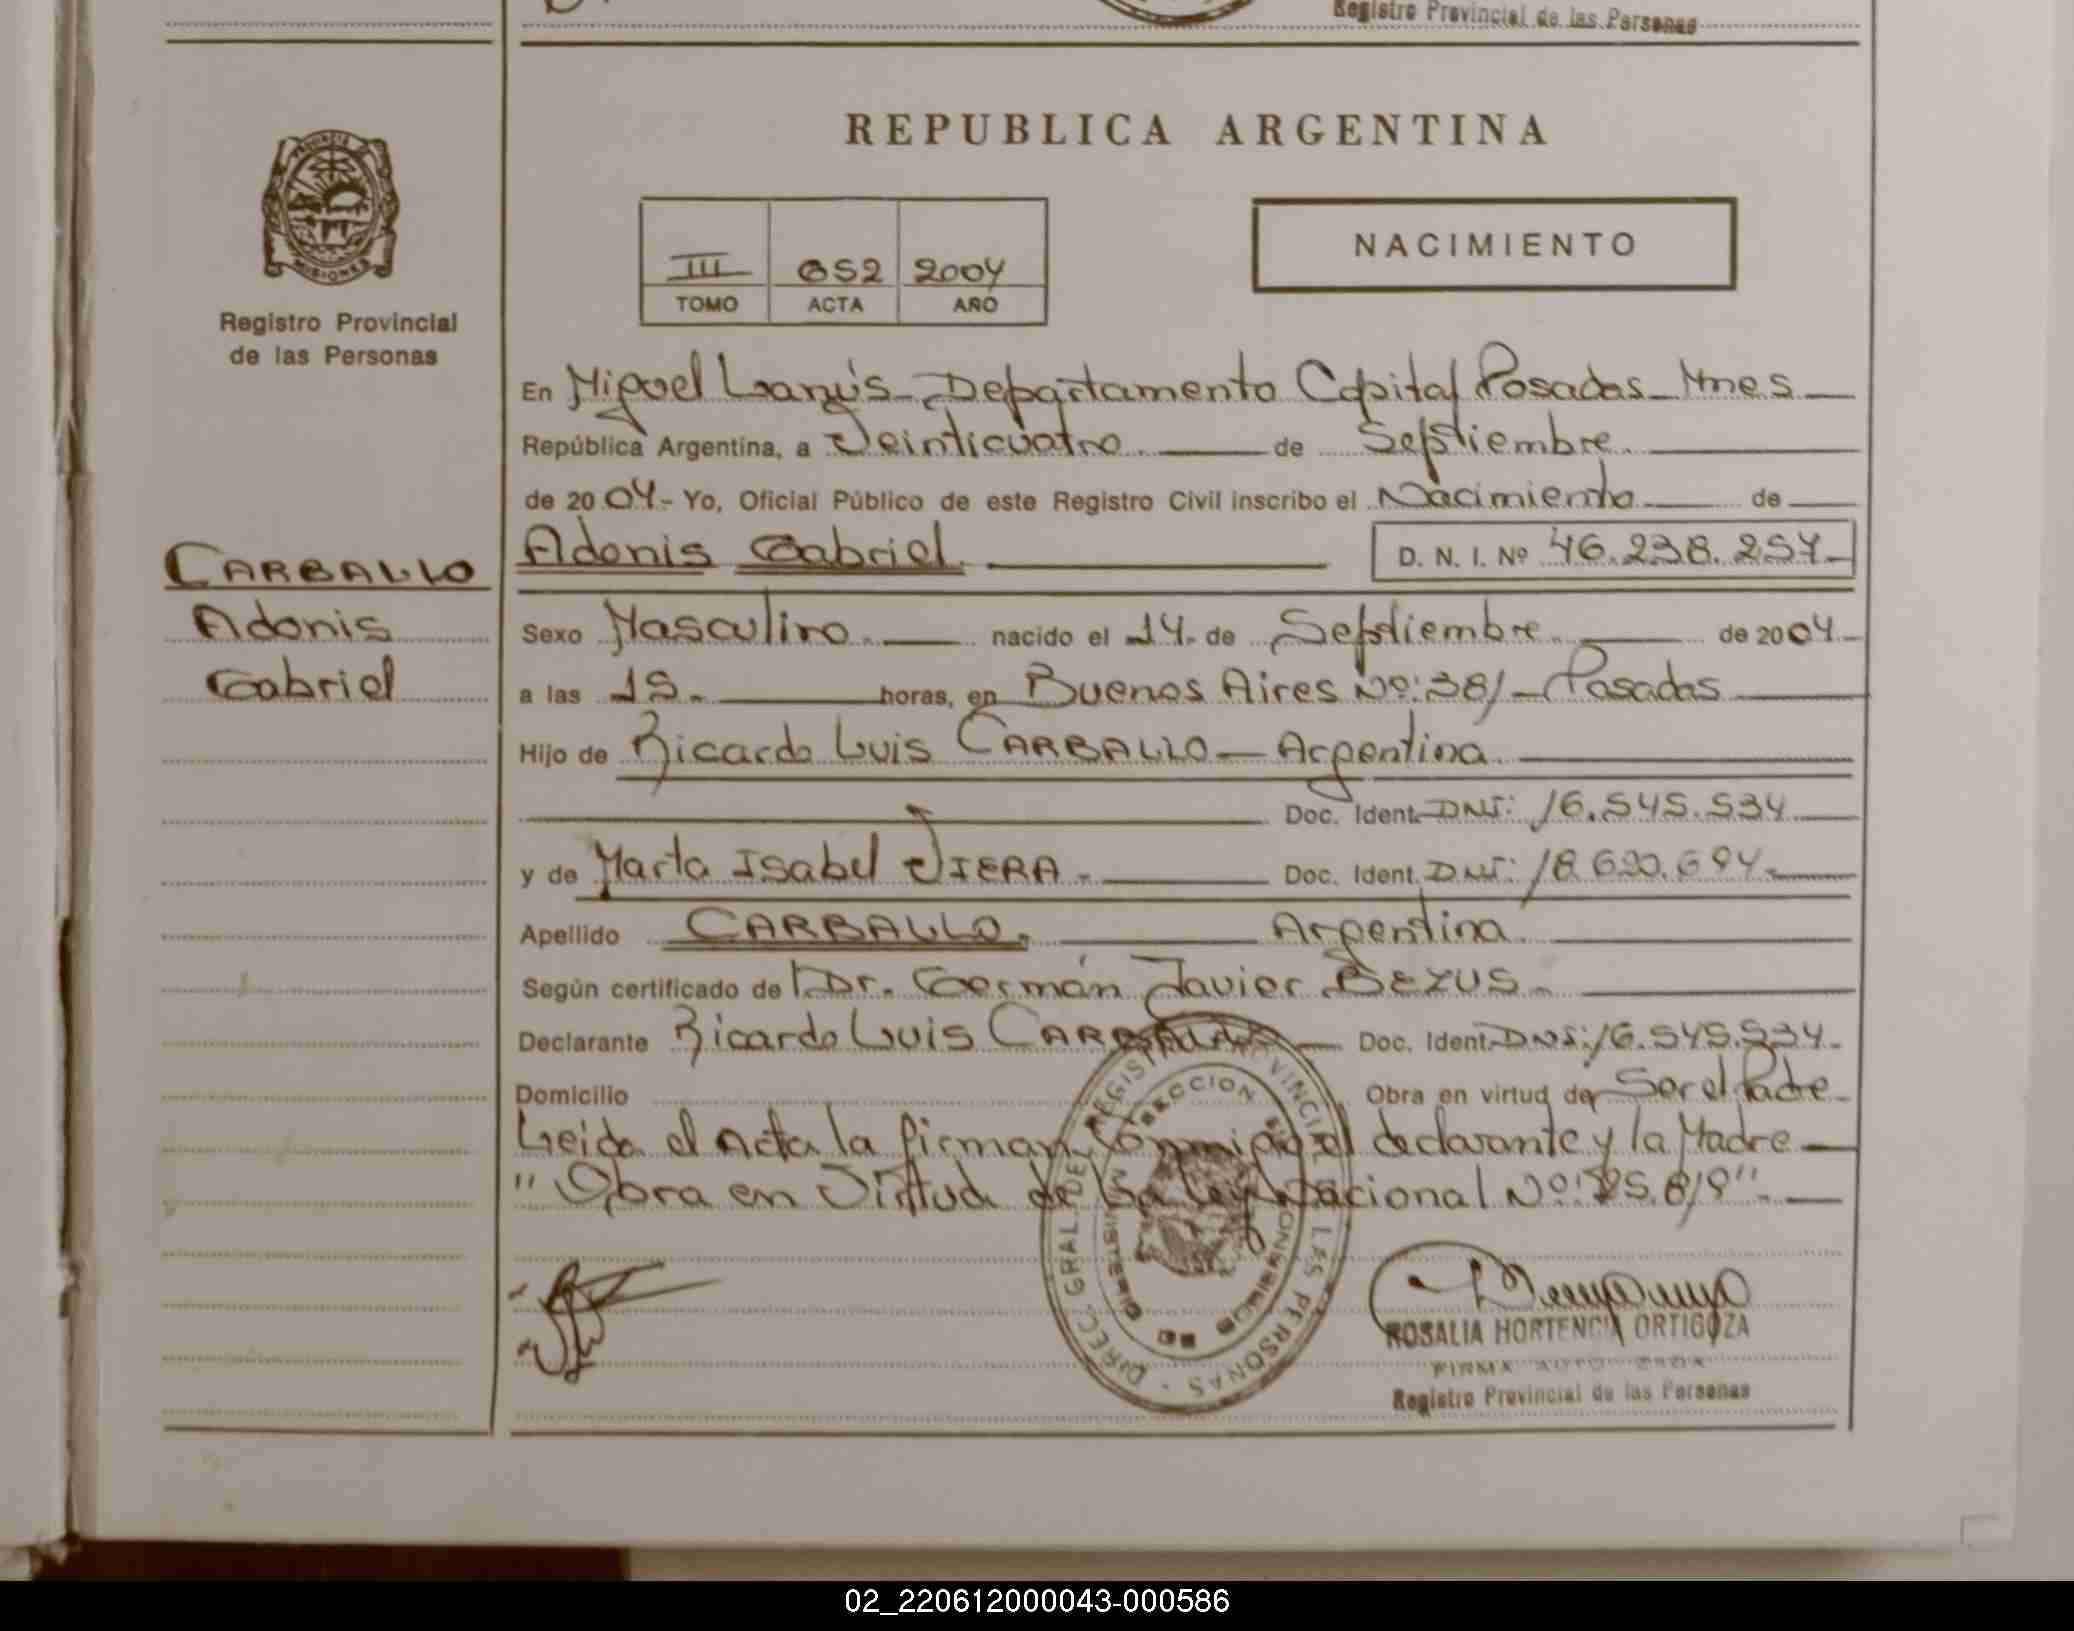 Registro Provincial de las Personas
REPUBLICA ARGENTINA
PROVINCIA
MISIONES
Registro Provincial
de las Personas
III 052 2004
TOMO ACTA AÑO
NACIMIENTO
En Miguel Lanús - Departamento Capital Posadas - Mnes
República Argentina, a Veinticuatro de Septiembre
de 2004.- Yo, Oficial Público de este Registro Civil inscribo el Nacimiento de
CARBALLO
Adonis
Gabriel
Adonis Gabriel D. N. I. Nº 46.238.257-
Sexo Masculino. nacido el 14. de Septiembre. de 2004
a las 15. horas, en Buenos Aires Nº: 381 - Posadas
Hijo de Ricardo Luis CARBALLO - Argentina
Doc. Ident. DNI: 16.545.534
y de Marta Isabel VIERA. Doc. Ident. DNI: 18.620.694.
Apellido CARBALLO. Argentina
Según certificado de Dr. Germán Javier BEZUS.
Declarante Ricardo Luis CARBALLO Doc. Ident. DNI: 16.545.534.
Domicilio Obra en virtud de Ser el Padre
Leida el Acta la firman Conmigo el declarante y la Madre
"Obra en Virtud de la Ley Nacional Nº: 25.819".
ROSALIA HORTENCIA ORTIGOZA
FIRMA AUTORIZADA
Registro Provincial de las Personas
02_220612000043-000586